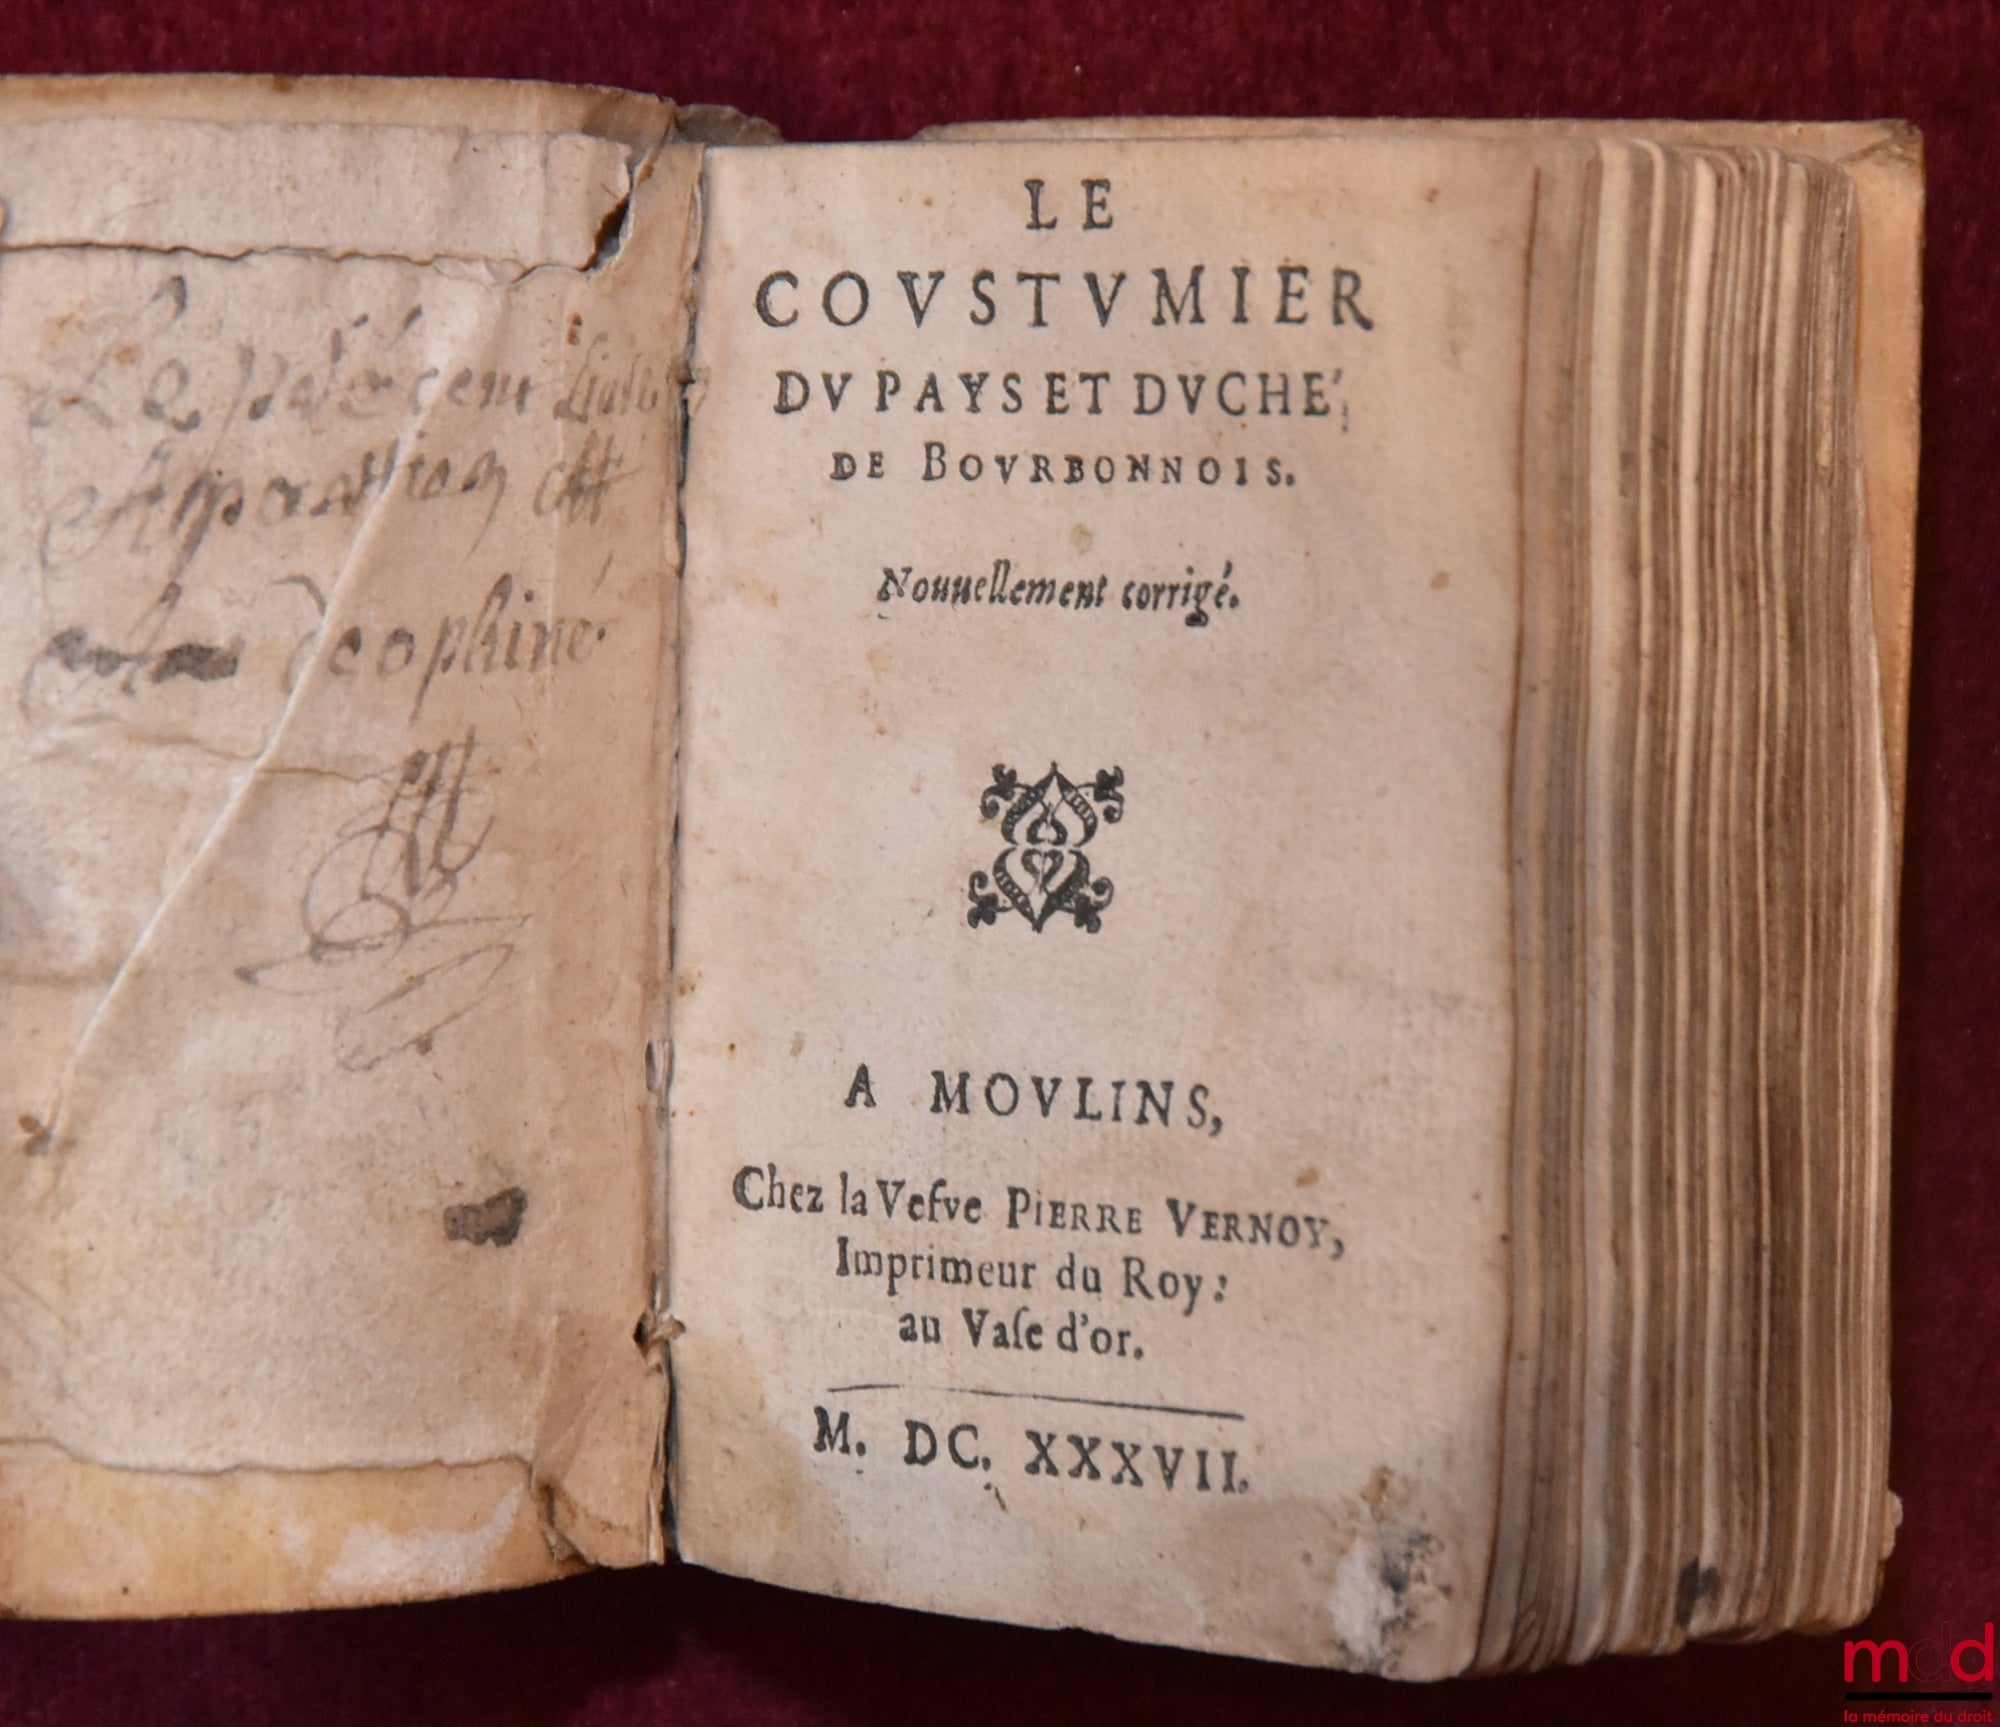 Le présent Liv
Apartien
deophiné
LE
COVSTVMIER
DV PAYS ET DVCHÉ,
DE BOVRBONNOIS.
Nouuellement corrigé.
A MOVLINS,
Chez la Vefve PIERRE VERNOY,
Imprimeur du Roy:
au Vaſe d'or.
M. DC. XXXVII.
mdd
la mémoire du droit